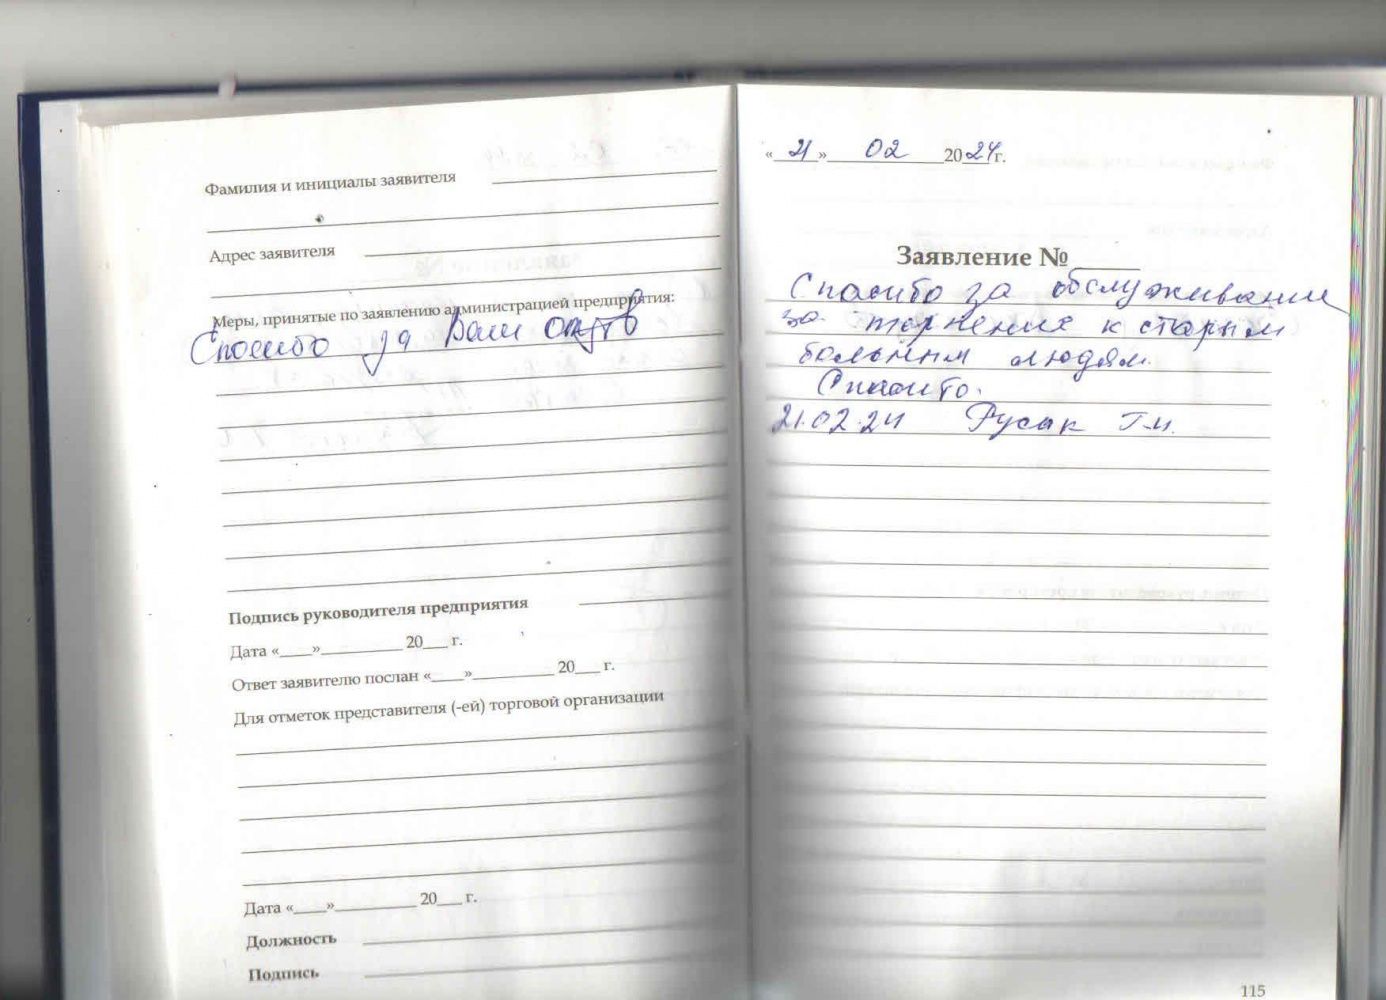 Фамилия и инициалы заявителя
Адрес заявителя
Меры, принятые по заявлению администрацией предприятия:
Спасибо за Ваш
Подпись руководителя предприятия
Дата «____»__________ 20___ г.
Ответ заявителю послан «____»__________ 20___ г.
Для отметок представителя (-ей) торговой организации
Дата «____»__________ 20___ г.
Должность
Подпись
«21» 02 2024г.
Заявление №
Спасибо за обслуживание
за терпение к старым
больным людям.
Спасибо.
21.02.24 Русак Г.И.
115